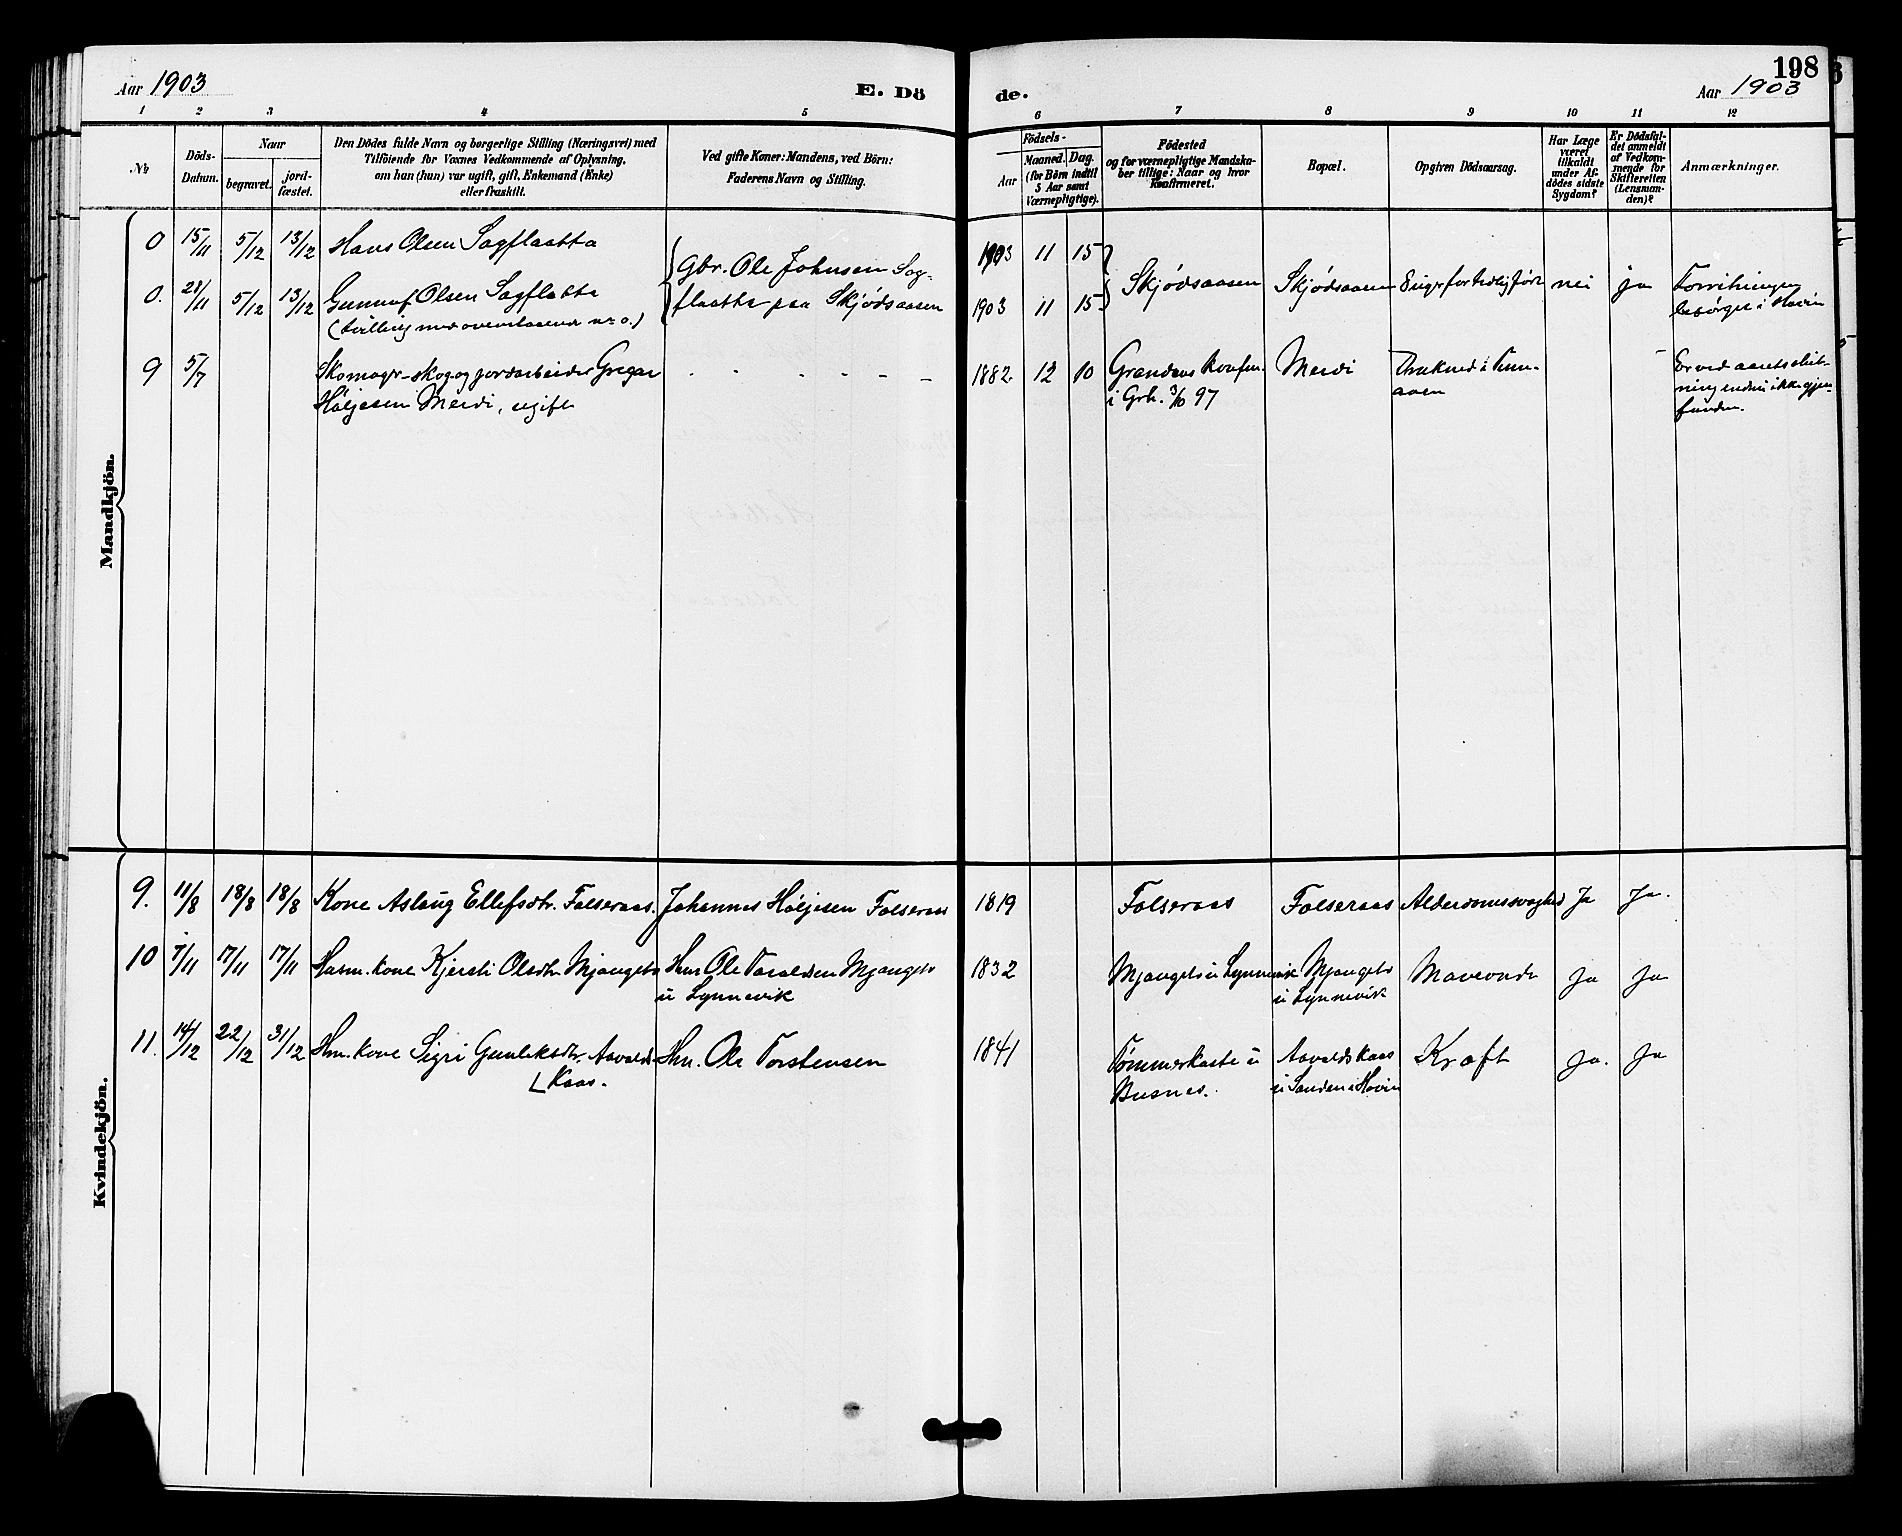 198
Aar 1903
E. Dö
de.
Aar 1903
1 2 3 4 5 6 7 8 9 10 11 12
No
Döds-
Datum.
Naar
begravet.
jord-
fæstet.
Den Dödes fulde Navn og borgerlige Stilling (Næringsvei) med
Tilföiende for Voxnes Vedkommende af Oplysning,
om han (hun) var ugift, gift, Enkemand (Enke)
eller fraskilt.
Ved gifte Koner: Mandens, ved Börn:
Faderens Navn og Stilling.
Födsels-
Aar
Maaned. Dag.
(for Börn indtil
5 Aar samt
Værnepligtige).
Födested
og for værnepligtige Mandska-
ber tillige: Naar og hvor
konfirmeret.
Bopæl.
Opgiven Dödsaarsag.
Har Læge
været
tilkaldt
under Af-
dödes sidste
Sygdom?
Er Dödsfal-
det anmeldt
af Vedkom-
mende for
Skifteretten
(Lensman-
den)?
Anmærkninger.
Mandkjön.
0 15/11 5/12 13/12 Hans Olsen Sagflaatta
Gbr. Ole Johnsen Sag-
flaatta paa Skjödsaasen
1903 11 15
0. 21/11 5/12 13/12 Gunnuf Olsen Sagflatta
(tvilling med ovenstaaende nr 0.)
1903 11 15
Skjødsaasen Skjødsaasen nei ja
i Hovin
9 5/7 Skomager- skog og jordarbeider Gregar
Høljesen Meidi, ugift
- - - - - -
1882. 12 10 Grandens konfm.
i Grh. 3/10 97
Meidi
Druknet i Tinn-
aaen
Er ved aarets slut-
ning endnu ikke gjen-
funden.
Kvindekjön.
9. 11/8 18/8 18/8 Kone Aslaug Ellefsdtr. Folseraas. Johannes Høljesen Folseraas 1819 Folseraas Folseraas Alderdomssvaghed Ja Ja.
10 7/11 17/11 17/11 Husm. kone Kjersti Olsdtr. Mjangets Hm. Ole Taraldsen Mjangets
u Lynnevik
1832 Mjangets u Lynnevik Mjangets
u Lynnevik
Maveonde ja ja
11. 14/12 22/12 31/12 Hm. kone Sigri Gunleksdtr. Aavalds-
Kaas.
Hm. Ole Torstensen 1841 Tømmerkaste u
Busnes.
Aavaldskaas
u Sanden i Hovin
Kræft ja. ja